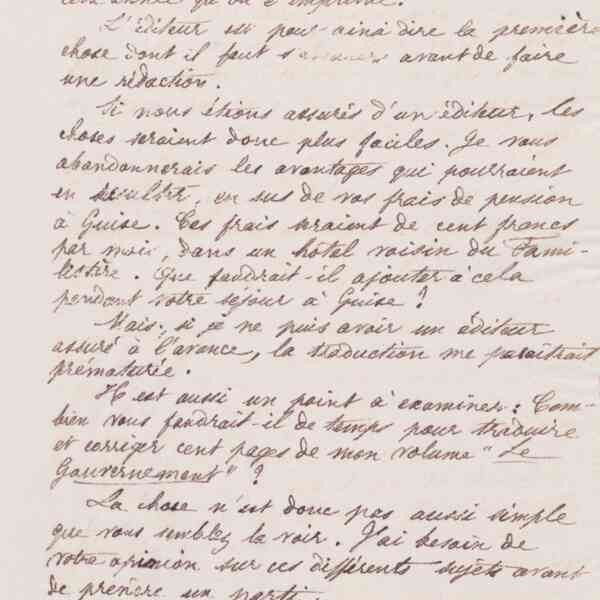 L'éditeur est pour ainsi dire la première
chose dont il faut s'assurer avant de faire
une rédaction.
Si nous étions assurés d'un éditeur, les
choses seraient donc plus faciles. Je vous
abandonnerais les avantages qui pourraient
en résulter, en sus de vos frais de pension
à Guise. Ces frais seraient de cent francs
par mois, dans un hôtel voisin du Fami-
listère. Que faudrait-il ajouter à cela
pendant votre séjour à Guise ?
Mais, si je ne puis avoir un éditeur
assuré à l'avance, la traduction me paraîtrait
prématurée.
Il est aussi un point à examiner : Com-
bien vous faudrait-il de temps pour traduire
et corriger cent pages de mon volume "Le
Gouvernement" ?
La chose n'est donc pas aussi simple
que vous semblez la voir. J'ai besoin de
votre opinion sur ces différents sujets avant
de prendre un parti.